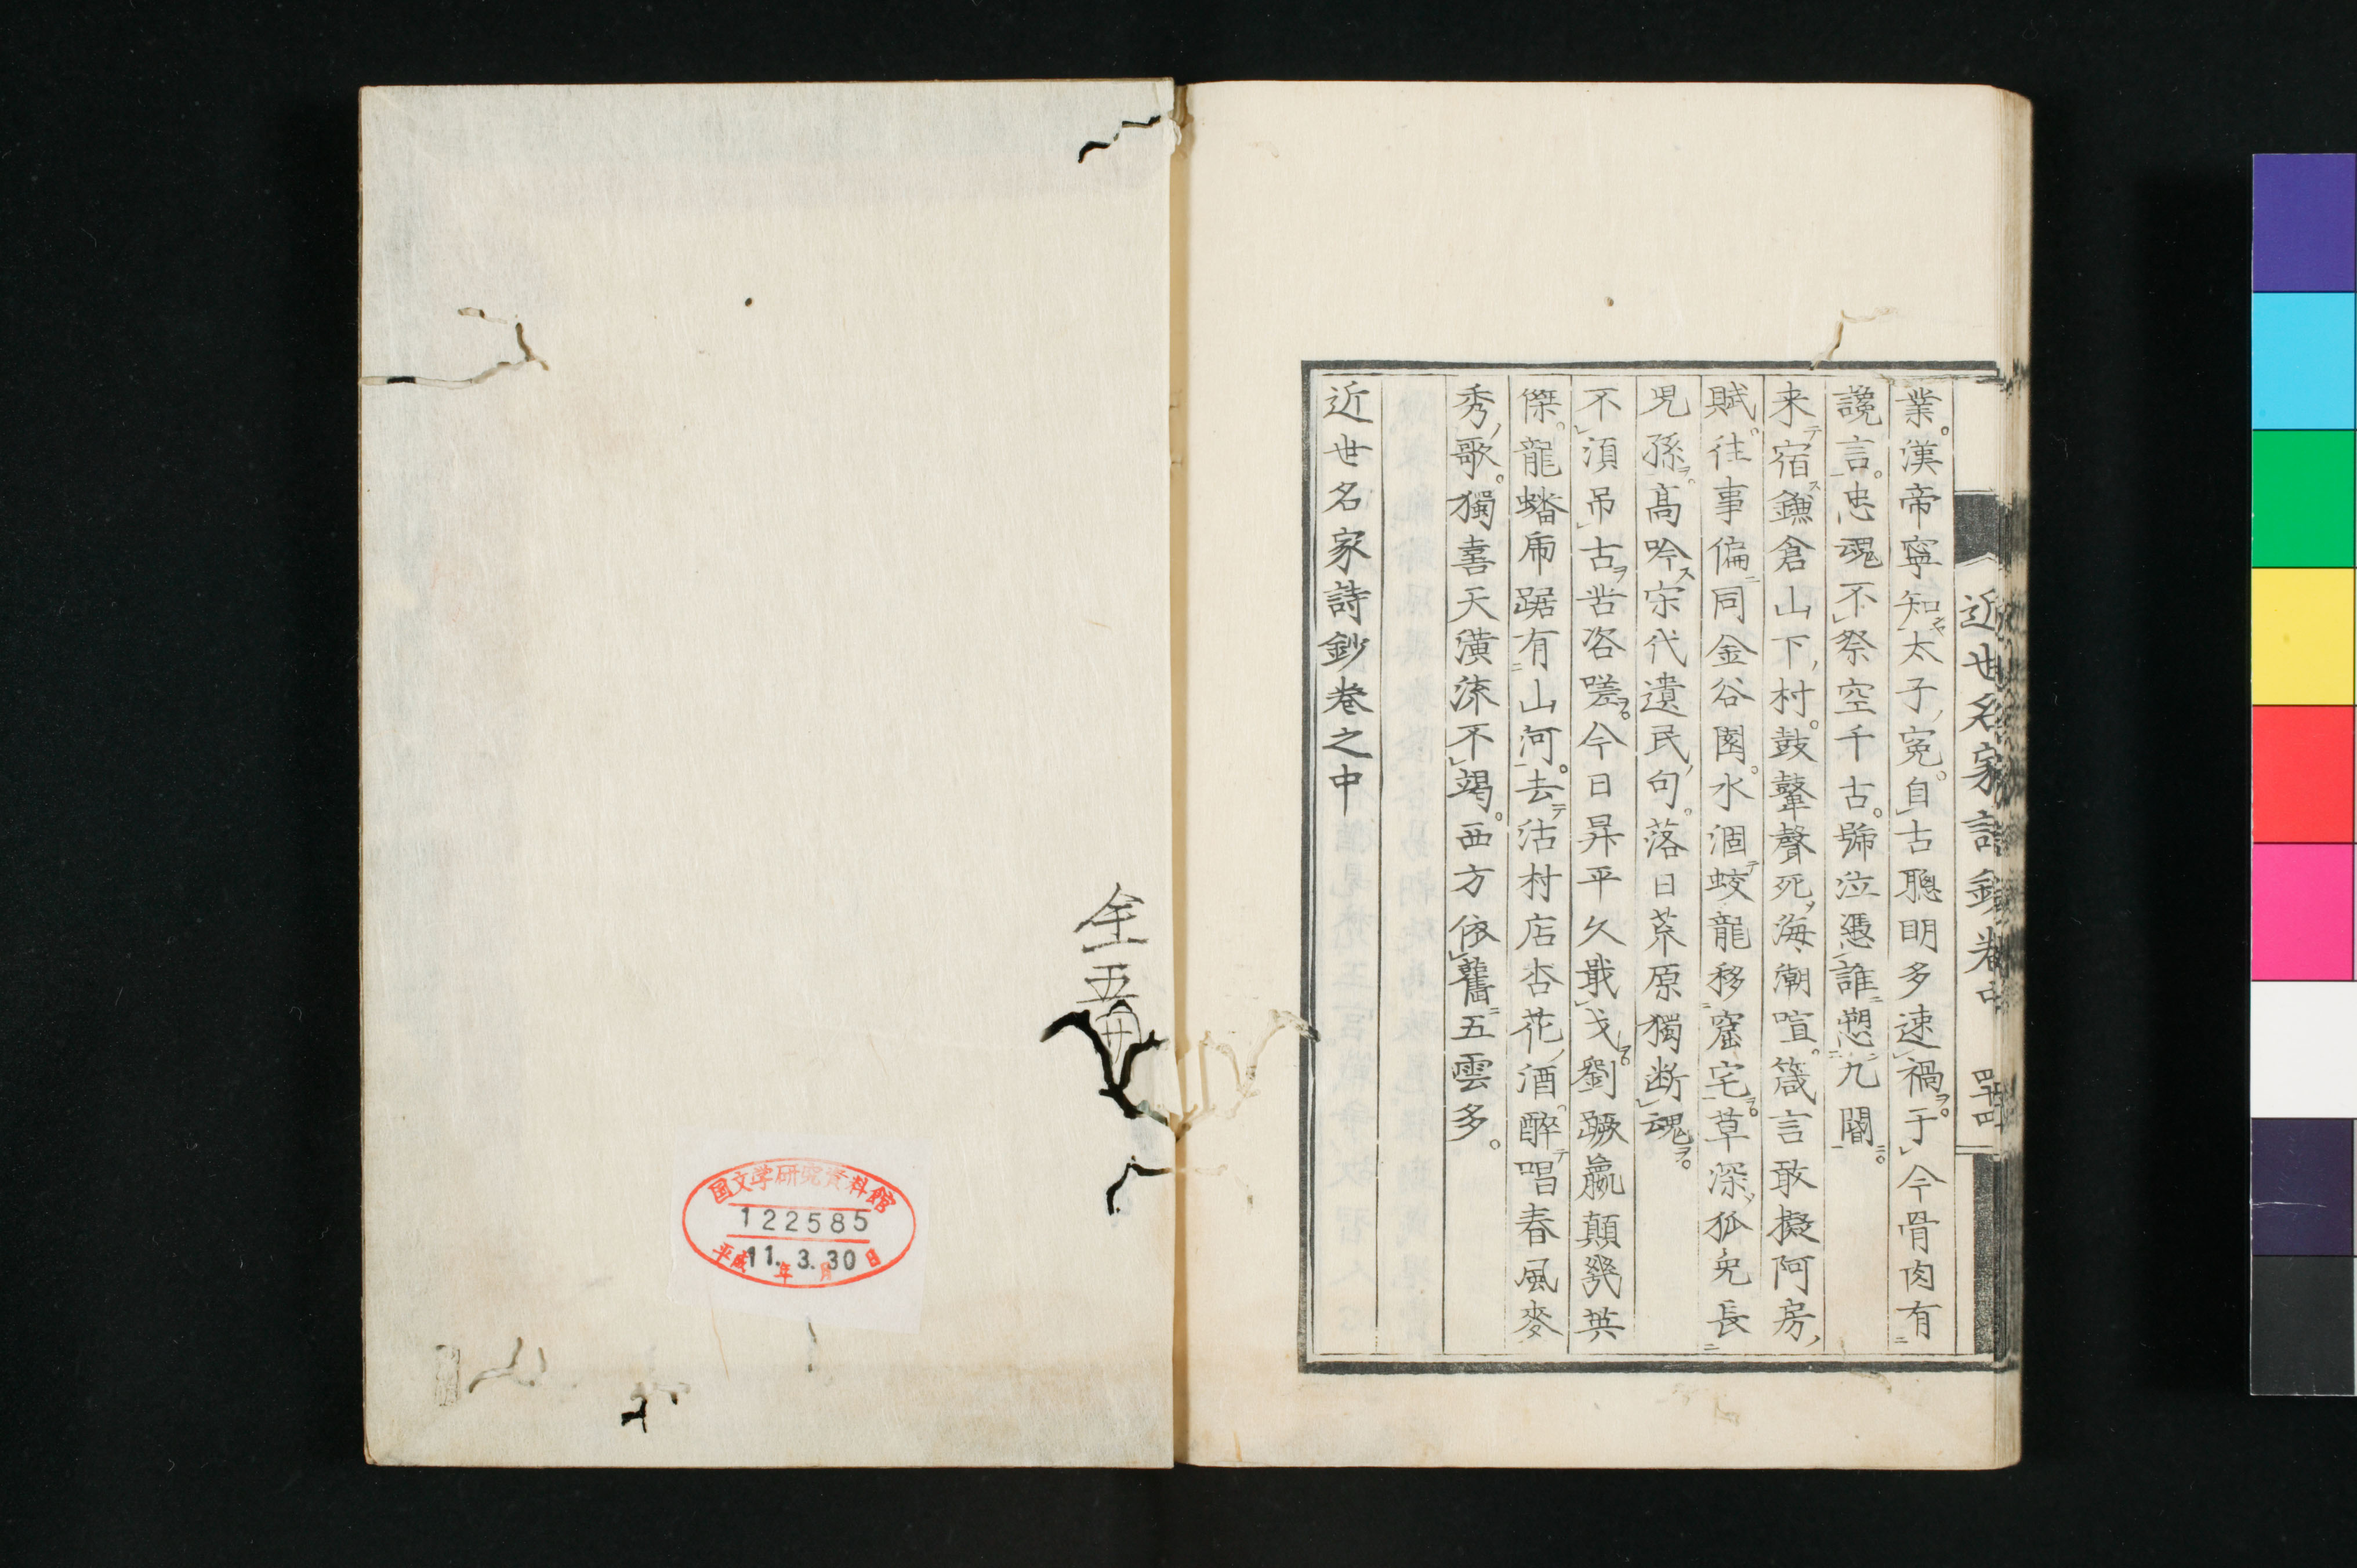 近世名家詩鈔卷中 四十四
業。漢帝寧知太子冤。自古聰明多速禍。于今骨肉有
讒言。忠魂不祭空千古。號泣憑誰愬九閽。
来宿鎌倉山下村。鼓鼙聲死海潮喧。箴言敢擬阿房
賦。往事偏同金谷園。水涸蛟龍移窟宅。草深狐兔長
児孫。高吟宋代遺民句。落日荒原獨断魂。
不須吊古苦咨嗟。今日昇平久戢戈。劉蹶嬴顛幾英
傑。龍蟠虎踞有山河。去沽村店杏花酒。醉唱春風麥
秀歌。獨喜天潢流不竭。西方依舊五雲多。
近世名家詩鈔卷之中
全五冊
国文学研究資料館
122585
平成11年3月30日